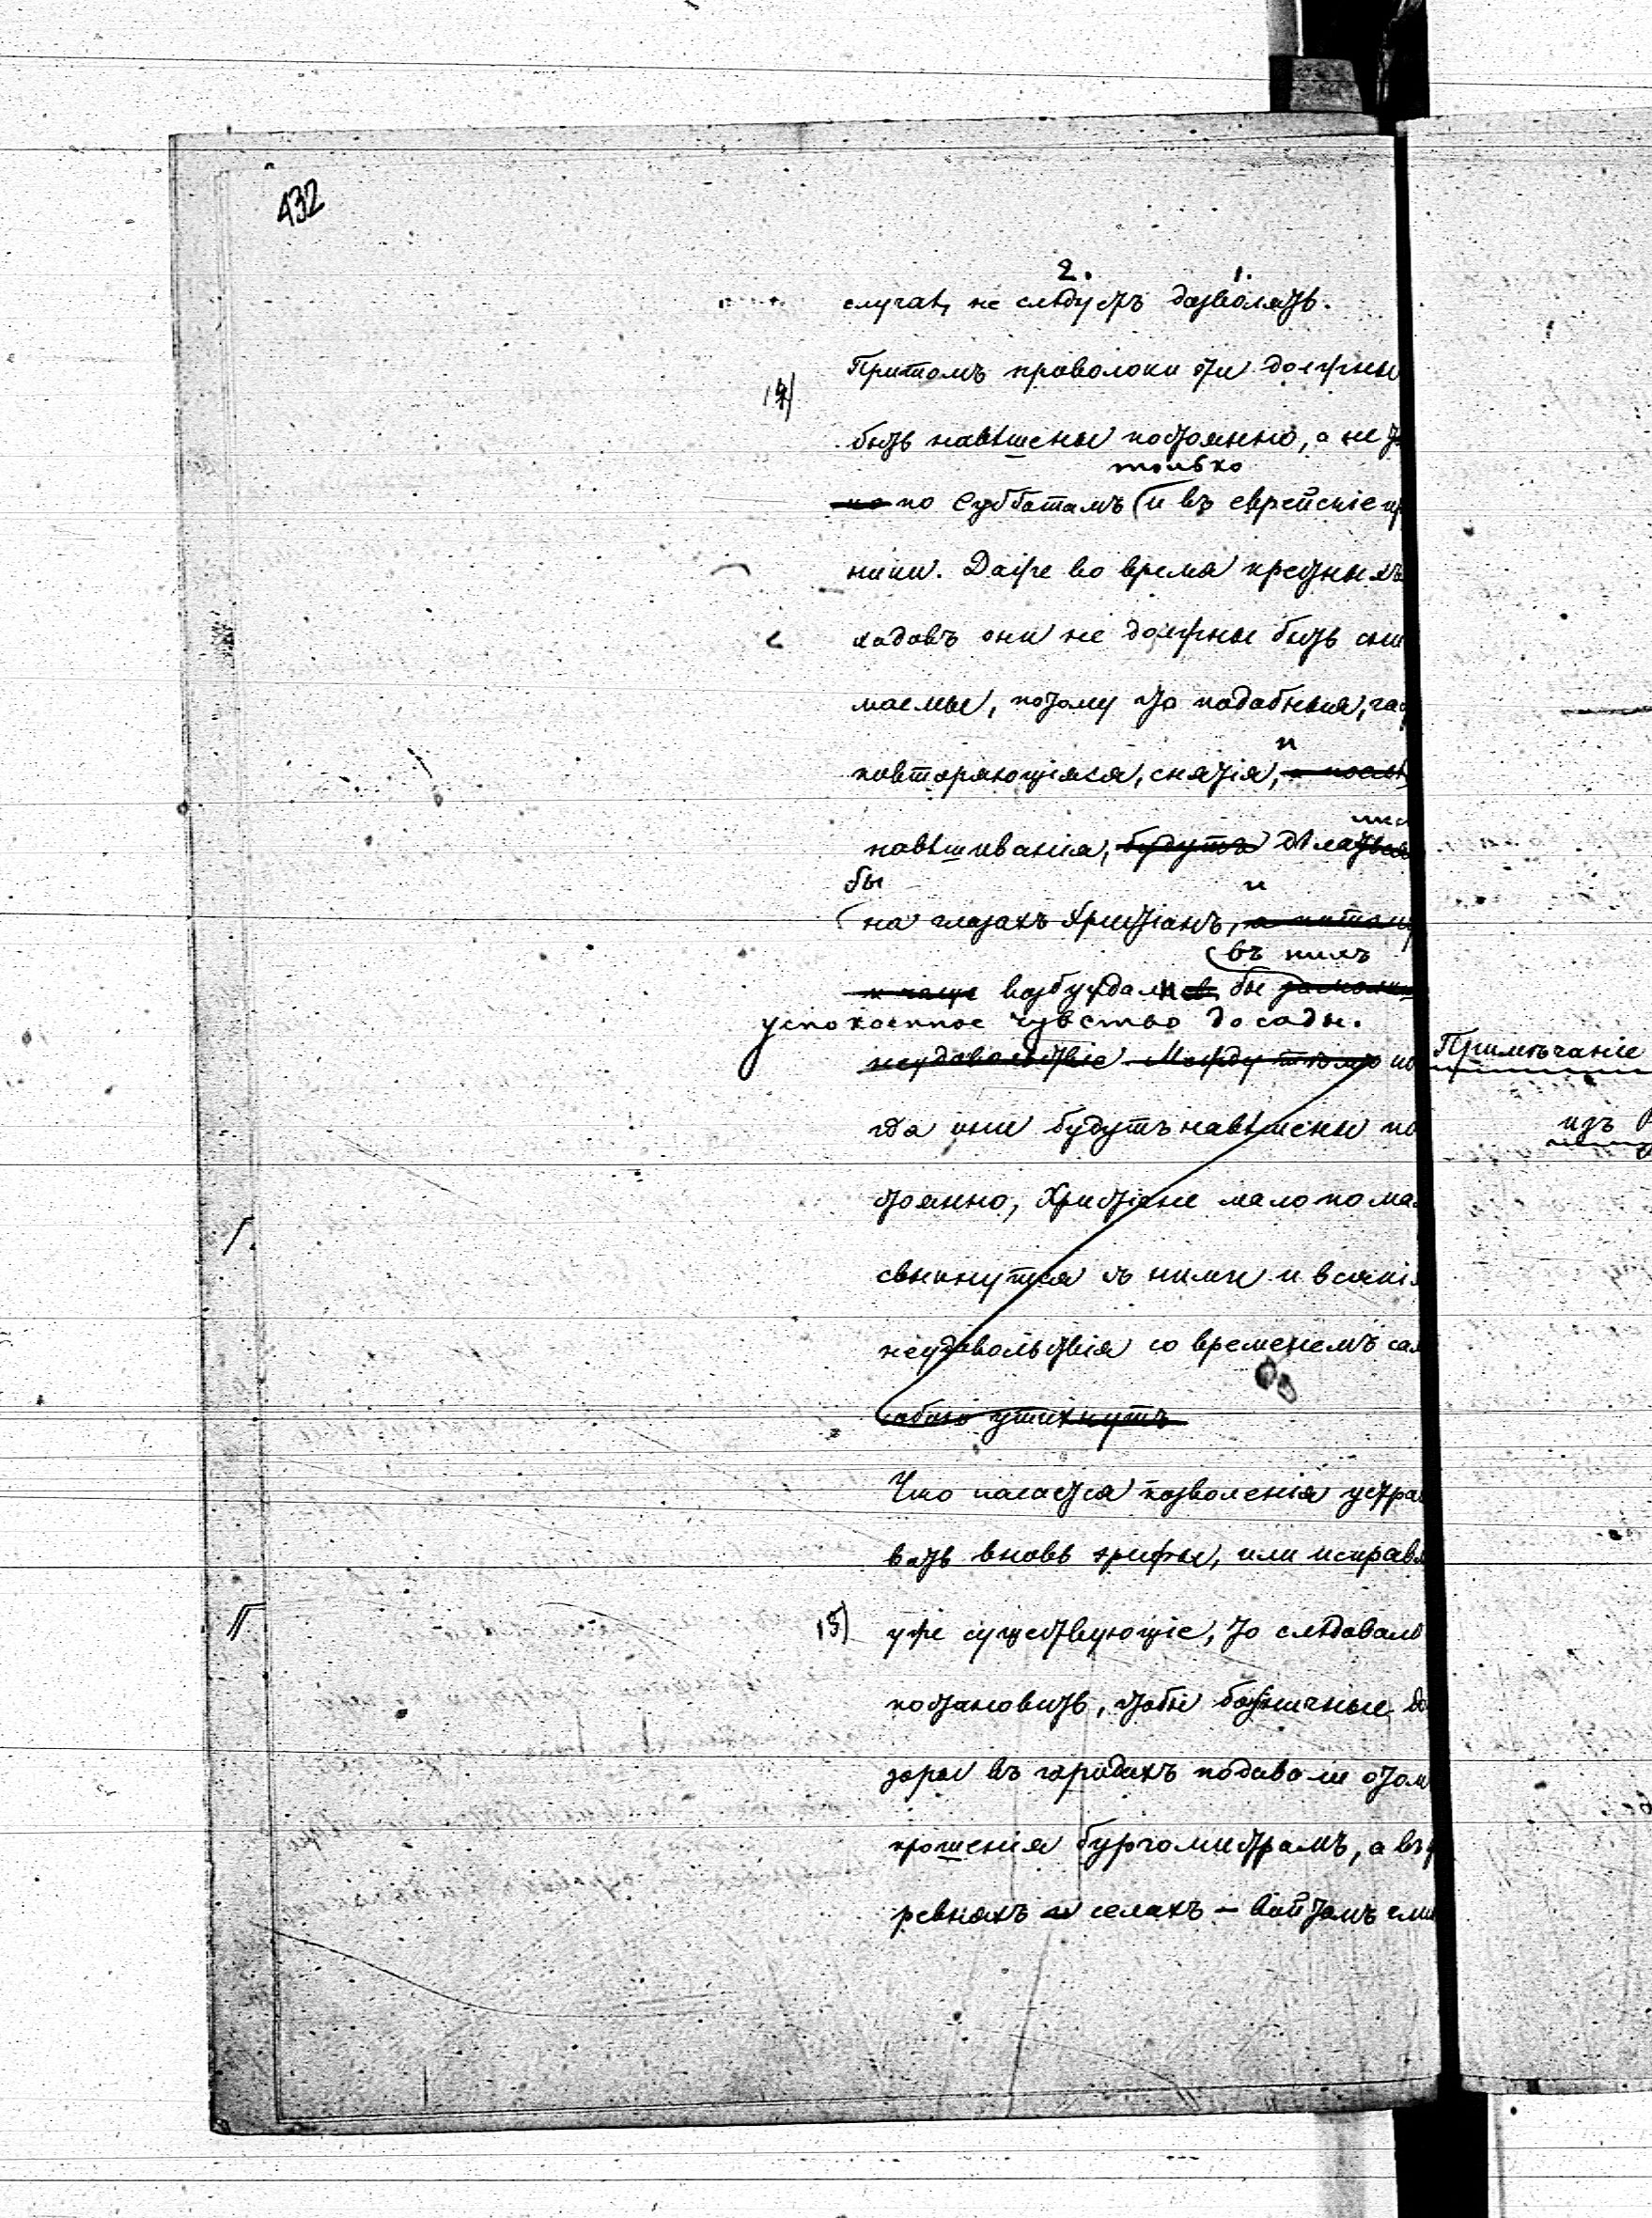 432
2. 1.
случаѣ, не слѣдуетъ дозволять.
14)
Притомъ проволоки эти должны
быть навѣшены постоянно, а не
только
но по Субботамъ (и въ еврейскіе пр
ники. Даже во время крестныхъ
ходовъ они не должны быть сни
маемы, потому что подобныя, час
повторяющіяся, снятія, а послѣ
и
навѣшиванія, будутъ дѣлаться
бы
и
на глазахъ Христіанъ, а потому
въ нихъ
и чаще возбуждали бы замолкш
успокоенное чувство досады.
неудовольствіе Между тѣмъ ко
гда они будутъ навѣшены по
стоянно, Христіане мало по ма
свыкнутся съ ними и всякія
неудовольствія со временемъ сам
собою утихнутъ
Что касается позволенія устраи
вать вновь эрифы, или исправл
15)
уже существующіе, то слѣдовало
постановить, чтобы божничные до
зоры въ городахъ подавали о томъ
прошенія бургомистрамъ, а въ
ревняхъ и селахъ – войтамъ гми
Примѣчаніе
изъ